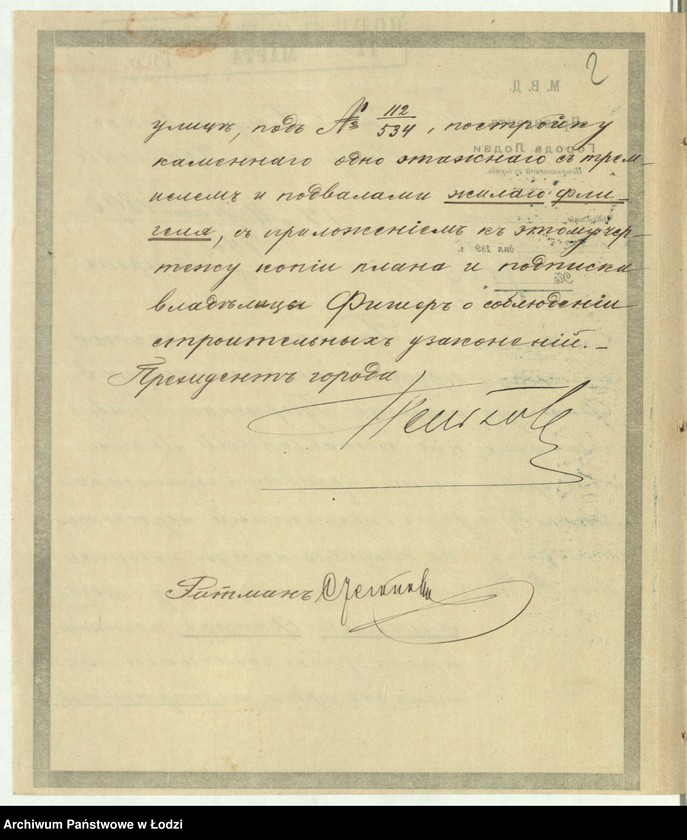 2
улицѣ, подъ № 112/534, постройку
каменнаго одно этажнаго съ трем-
пелемъ и подвалами жилаго фли-
геля, съ приложеніемъ къ этому чер-
тежу копіи плана и подписки
владѣлицы Фишеръ о соблюденіи
строительныхъ узаконеній.
Президентъ города
Пеньковс
Ритманъ
Archiwum Państwowe w Łodzi